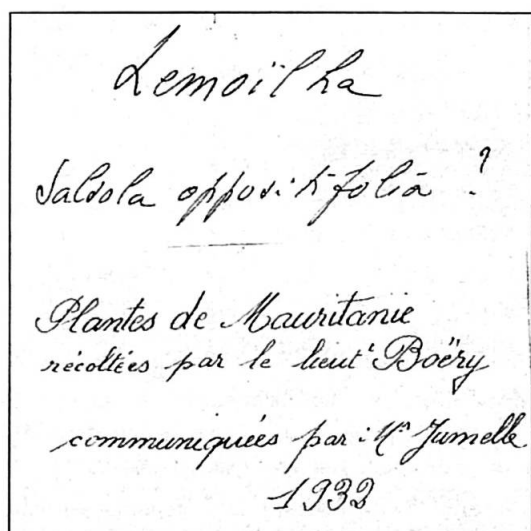 Lemoïlha
Salsola oppositifolia ?
Plantes de Mauritanie
récoltées par le lieutᵗ Boëry
communiquées par : Mʳ Jumelle
1932